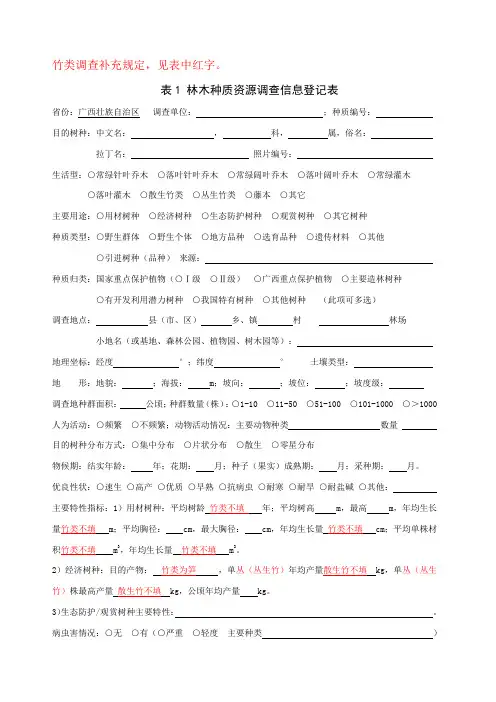 竹类调查补充规定，见表中红字。
表1 林木种质资源调查信息登记表
省份：广西壮族自治区 调查单位： ；种质编号：
目的树种：中文名： ， 科， 属，俗名：
拉丁名： 照片编号：
生活型：○常绿针叶乔木 ○落叶针叶乔木 ○常绿阔叶乔木 ○落叶阔叶乔木 ○常绿灌木
○落叶灌木 ○散生竹类 ○丛生竹类 ○藤本 ○其它
主要用途：○用材树种 ○经济树种 ○生态防护树种 ○观赏树种 ○其它树种
种质类型：○野生群体 ○野生个体 ○地方品种 ○选育品种 ○遗传材料 ○其他
○引进树种（品种） 来源：
种质归类：国家重点保护植物（○Ⅰ级 ○Ⅱ级） ○广西重点保护植物 ○主要造林树种
○有开发利用潜力树种 ○我国特有树种 ○其他树种 （此项可多选）
调查地点： 县（市、区） 乡、镇 村 林场
小地名（或基地、森林公园、植物园、树木园等）：
地理坐标：经度 °；纬度 ° 土壤类型：
地 形：地貌： ；海拔： m；坡向： ；坡位： ；坡度级：
调查地种群面积： 公顷；种群数量（株）：○1-10 ○11-50 ○51-100 ○101-1000 ○＞1000
人为活动：○频繁 ○不频繁；动物活动情况：主要动物种类 数量
目的树种分布方式：○集中分布 ○片状分布 ○散生 ○零星分布
物候期：结实年龄： 年；花期： 月；种子（果实）成熟期： 月；采种期： 月。
优良性状：○速生 ○高产 ○优质 ○早熟 ○抗病虫 ○耐寒 ○耐旱 ○耐盐碱 ○其他：
主要特性指标：1）用材树种：平均树龄 竹类不填 年；平均树高 m，最高 m，年均生长
量竹类不填 m；平均胸径： cm，最大胸径： cm，年均生长量 竹类不填 cm；平均单株材
积竹类不填 m³，年均生长量 竹类不填 m³。
2）经济树种：目的产物： 竹类为笋 ，单丛（丛生竹）年均产量散生竹不填 kg，单丛（丛生
竹）株最高产量 散生竹不填 kg，公顷年均产量 kg。
3）生态防护/观赏树种主要特性： 。
病虫害情况：○无 ○有（○严重 ○轻度 主要种类 ）